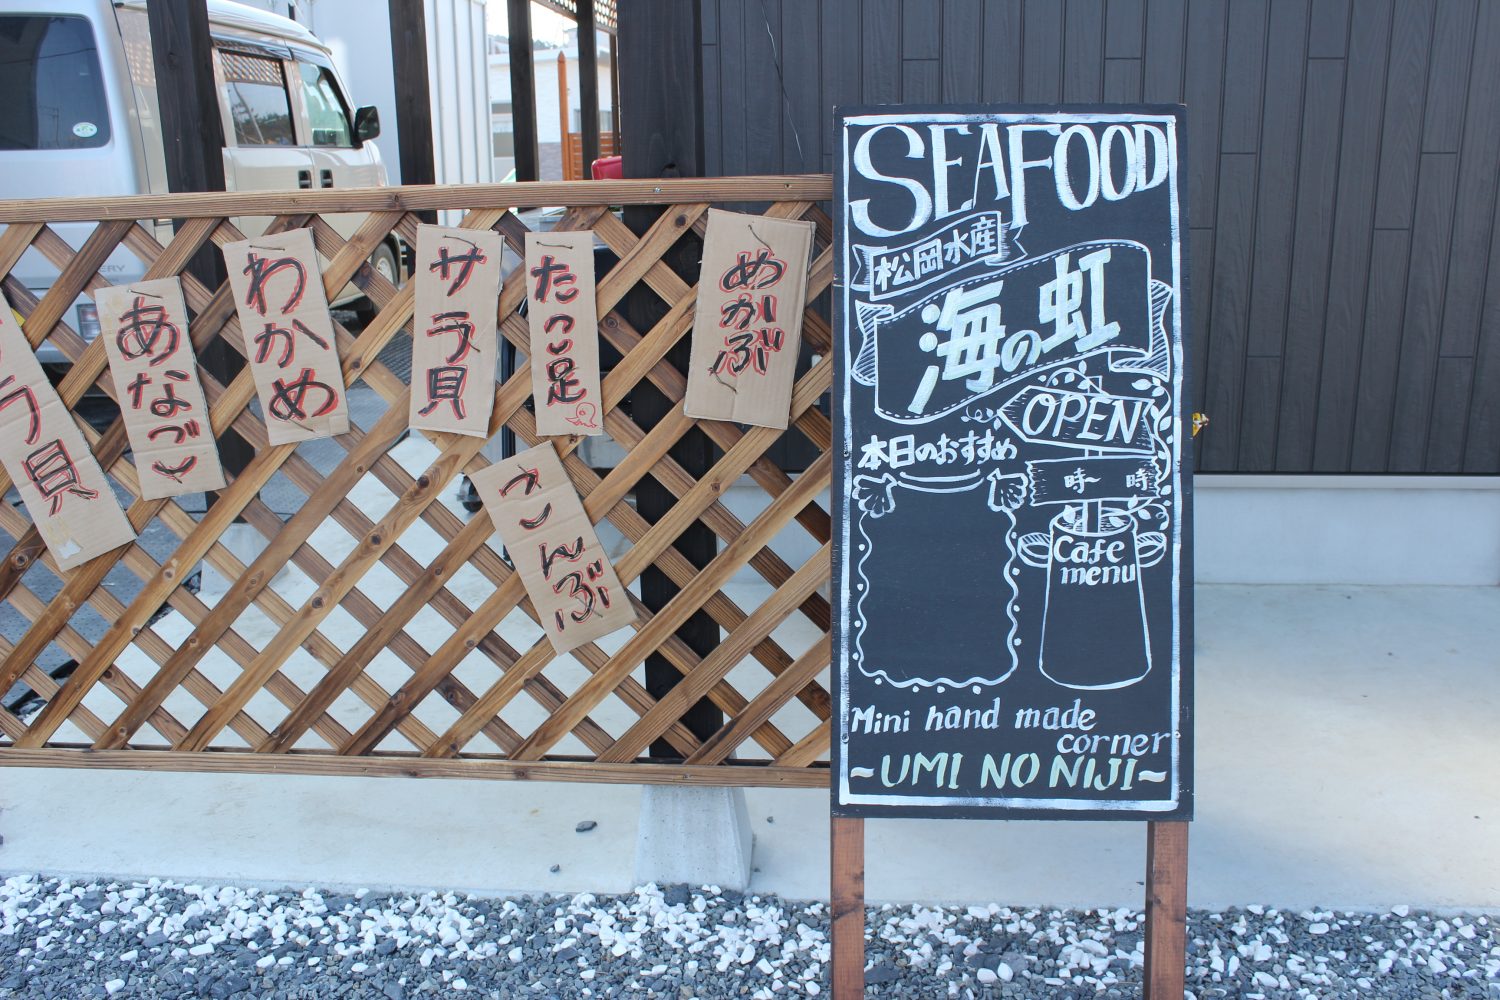 ラ貝
あなご
わかめ
サラ貝
たこ足
こんぶ
めかぶ
SEAFOOD
松岡水産
海の虹
OPEN
本日のおすすめ
時〜 時
Cafe
menu
Mini hand made
corner
~UMI NO NIJI~